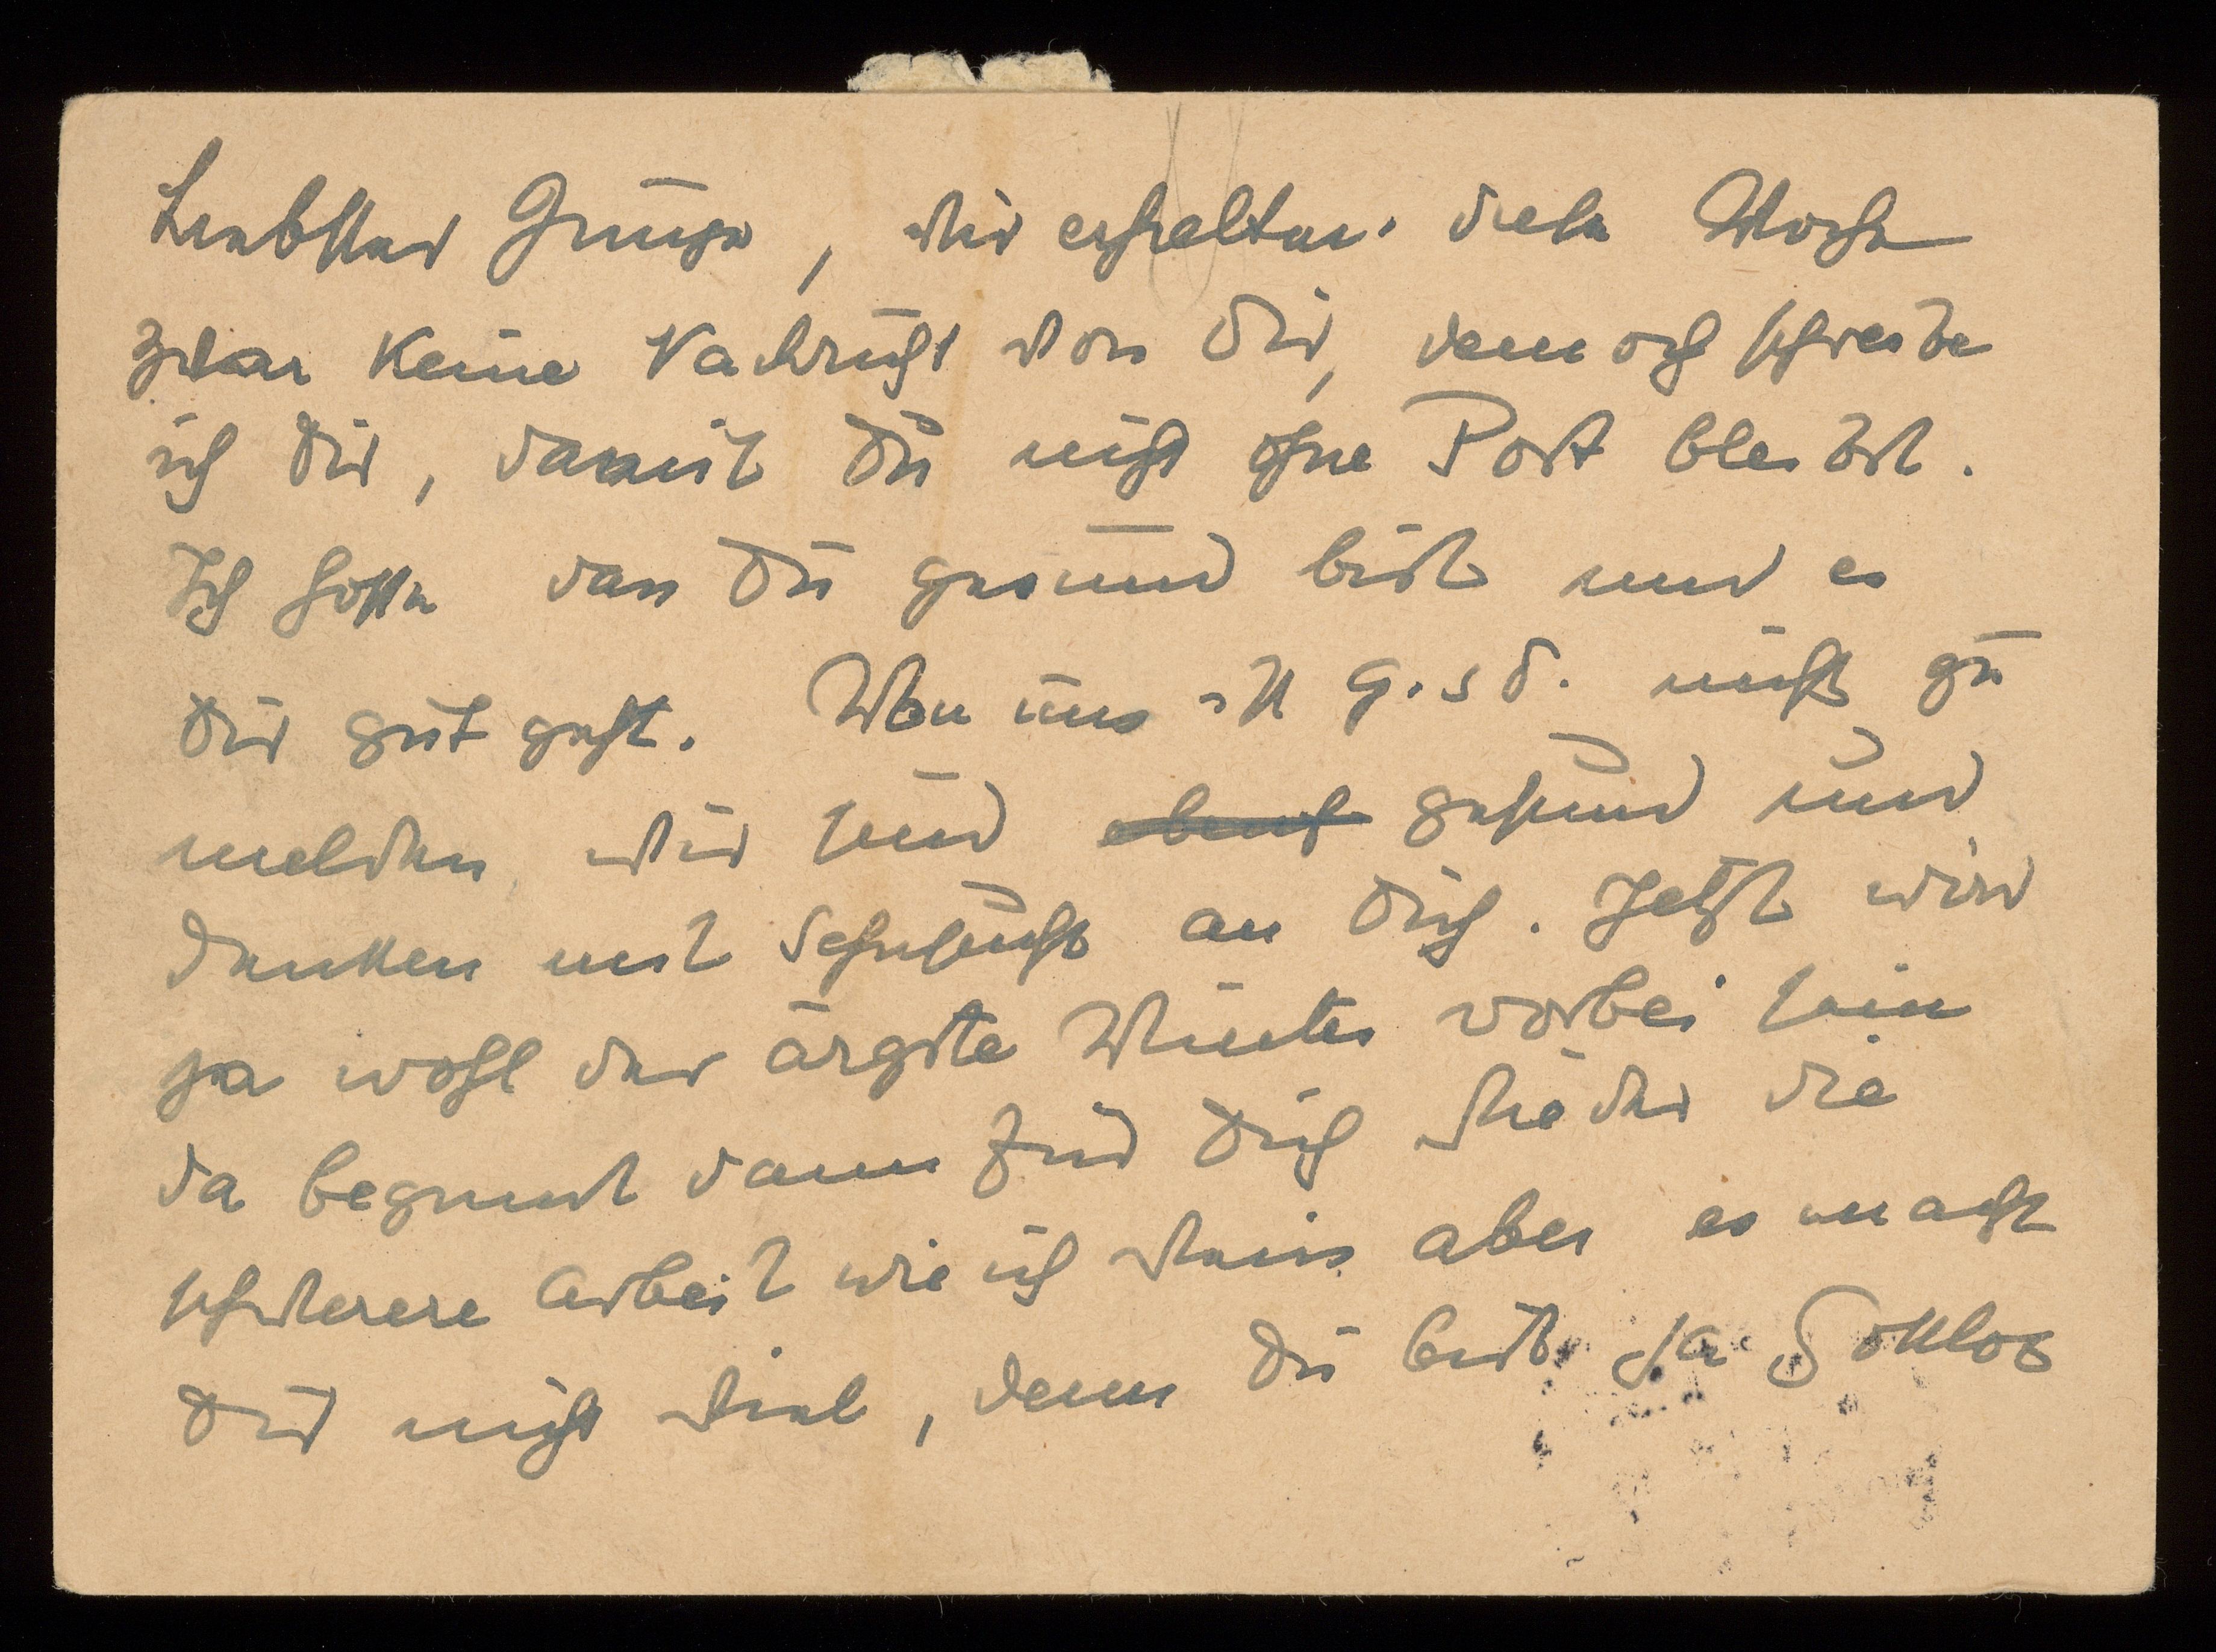 Liebster Junge, wir erhalten diese Woche
zwar keine Nachricht von Dir, dennoch schreibe
ich Dir, damit Du nicht ohne Post bleibst.
Ich hoffe dass Du gesund bist und es
Dir gut geht. Von uns ist G.s.d. nichts zu
melden, wir sind gesund und
denken mit Sehnsucht an Dich. Jetzt wird
ja wohl der ärgste Winter vorbei sein
da beginnt dann für Dich wieder die
schwerere Arbeit wie ich weiss aber es macht
Dir nicht viel, denn Du bist ja Gottlob